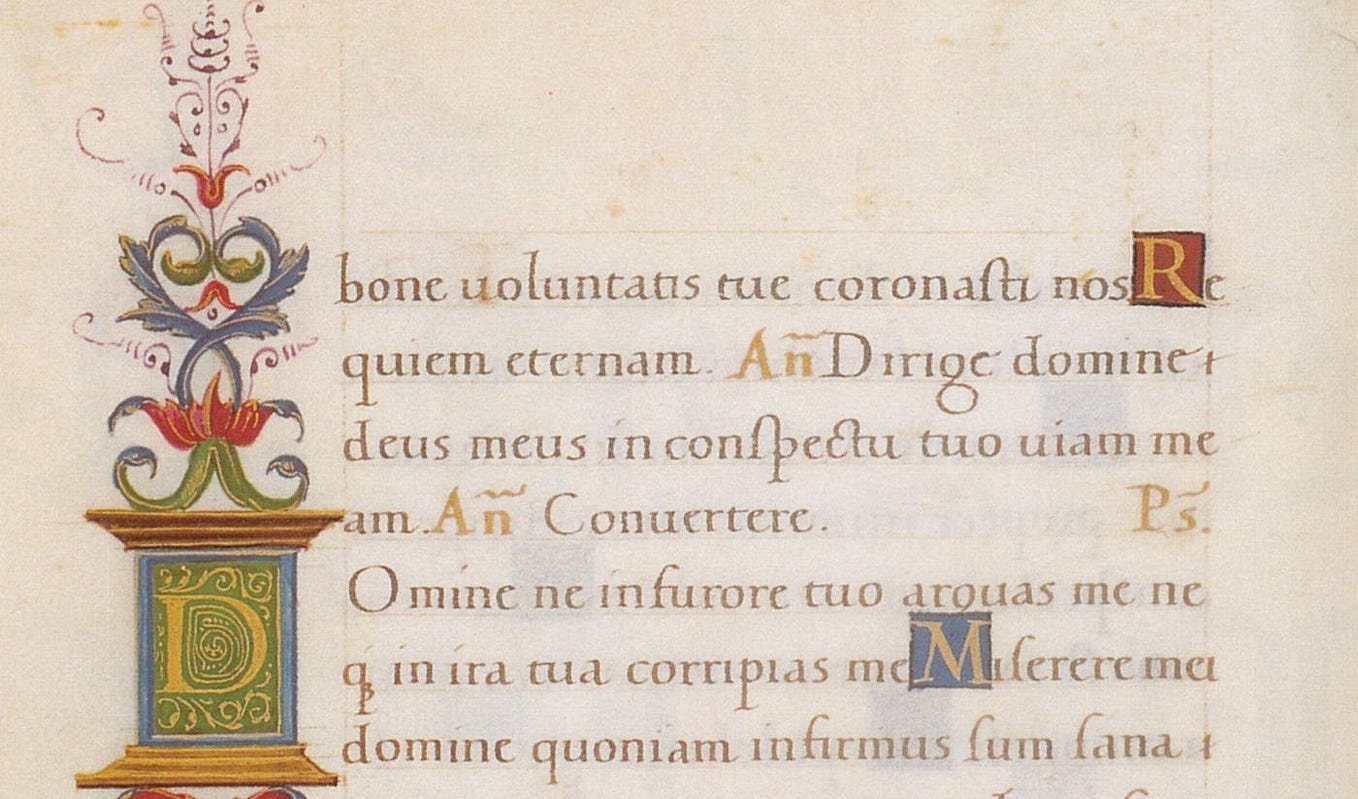 bone uoluntatis tue coronasti nos Re
quiem eternam. Añ Dirige domine
deus meus in conspectu tuo uiam me
am. Añ Conuertere. Ps.
DOmine ne in furore tuo arguas me ne
qꝫ in ira tua corripias me Miserere mei
domine quoniam infirmus sum sana